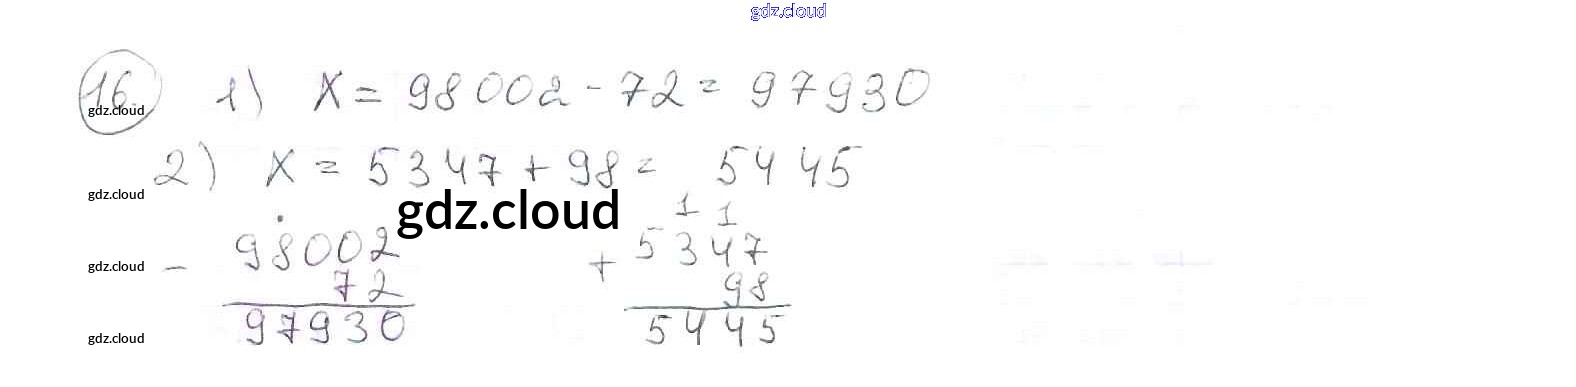 gdz.cloud
16. 1) X = 98002 - 72 = 97930
gdz.cloud
2) X = 5347 + 98 = 5445
gdz.cloud
gdz.cloud
1 1
98002 5347
gdz.cloud - +
72 98
97930 5445
gdz.cloud